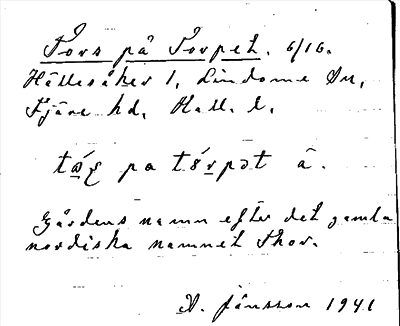 Tors på Torpet. 6/16.
Hällesåker 1, Lindome Sn,
Fjäre hd, Hall. l.
pa tórpət â.
Gårdens namn efter det gamla
nordiska namnet Thor.
A. Jansson 1941